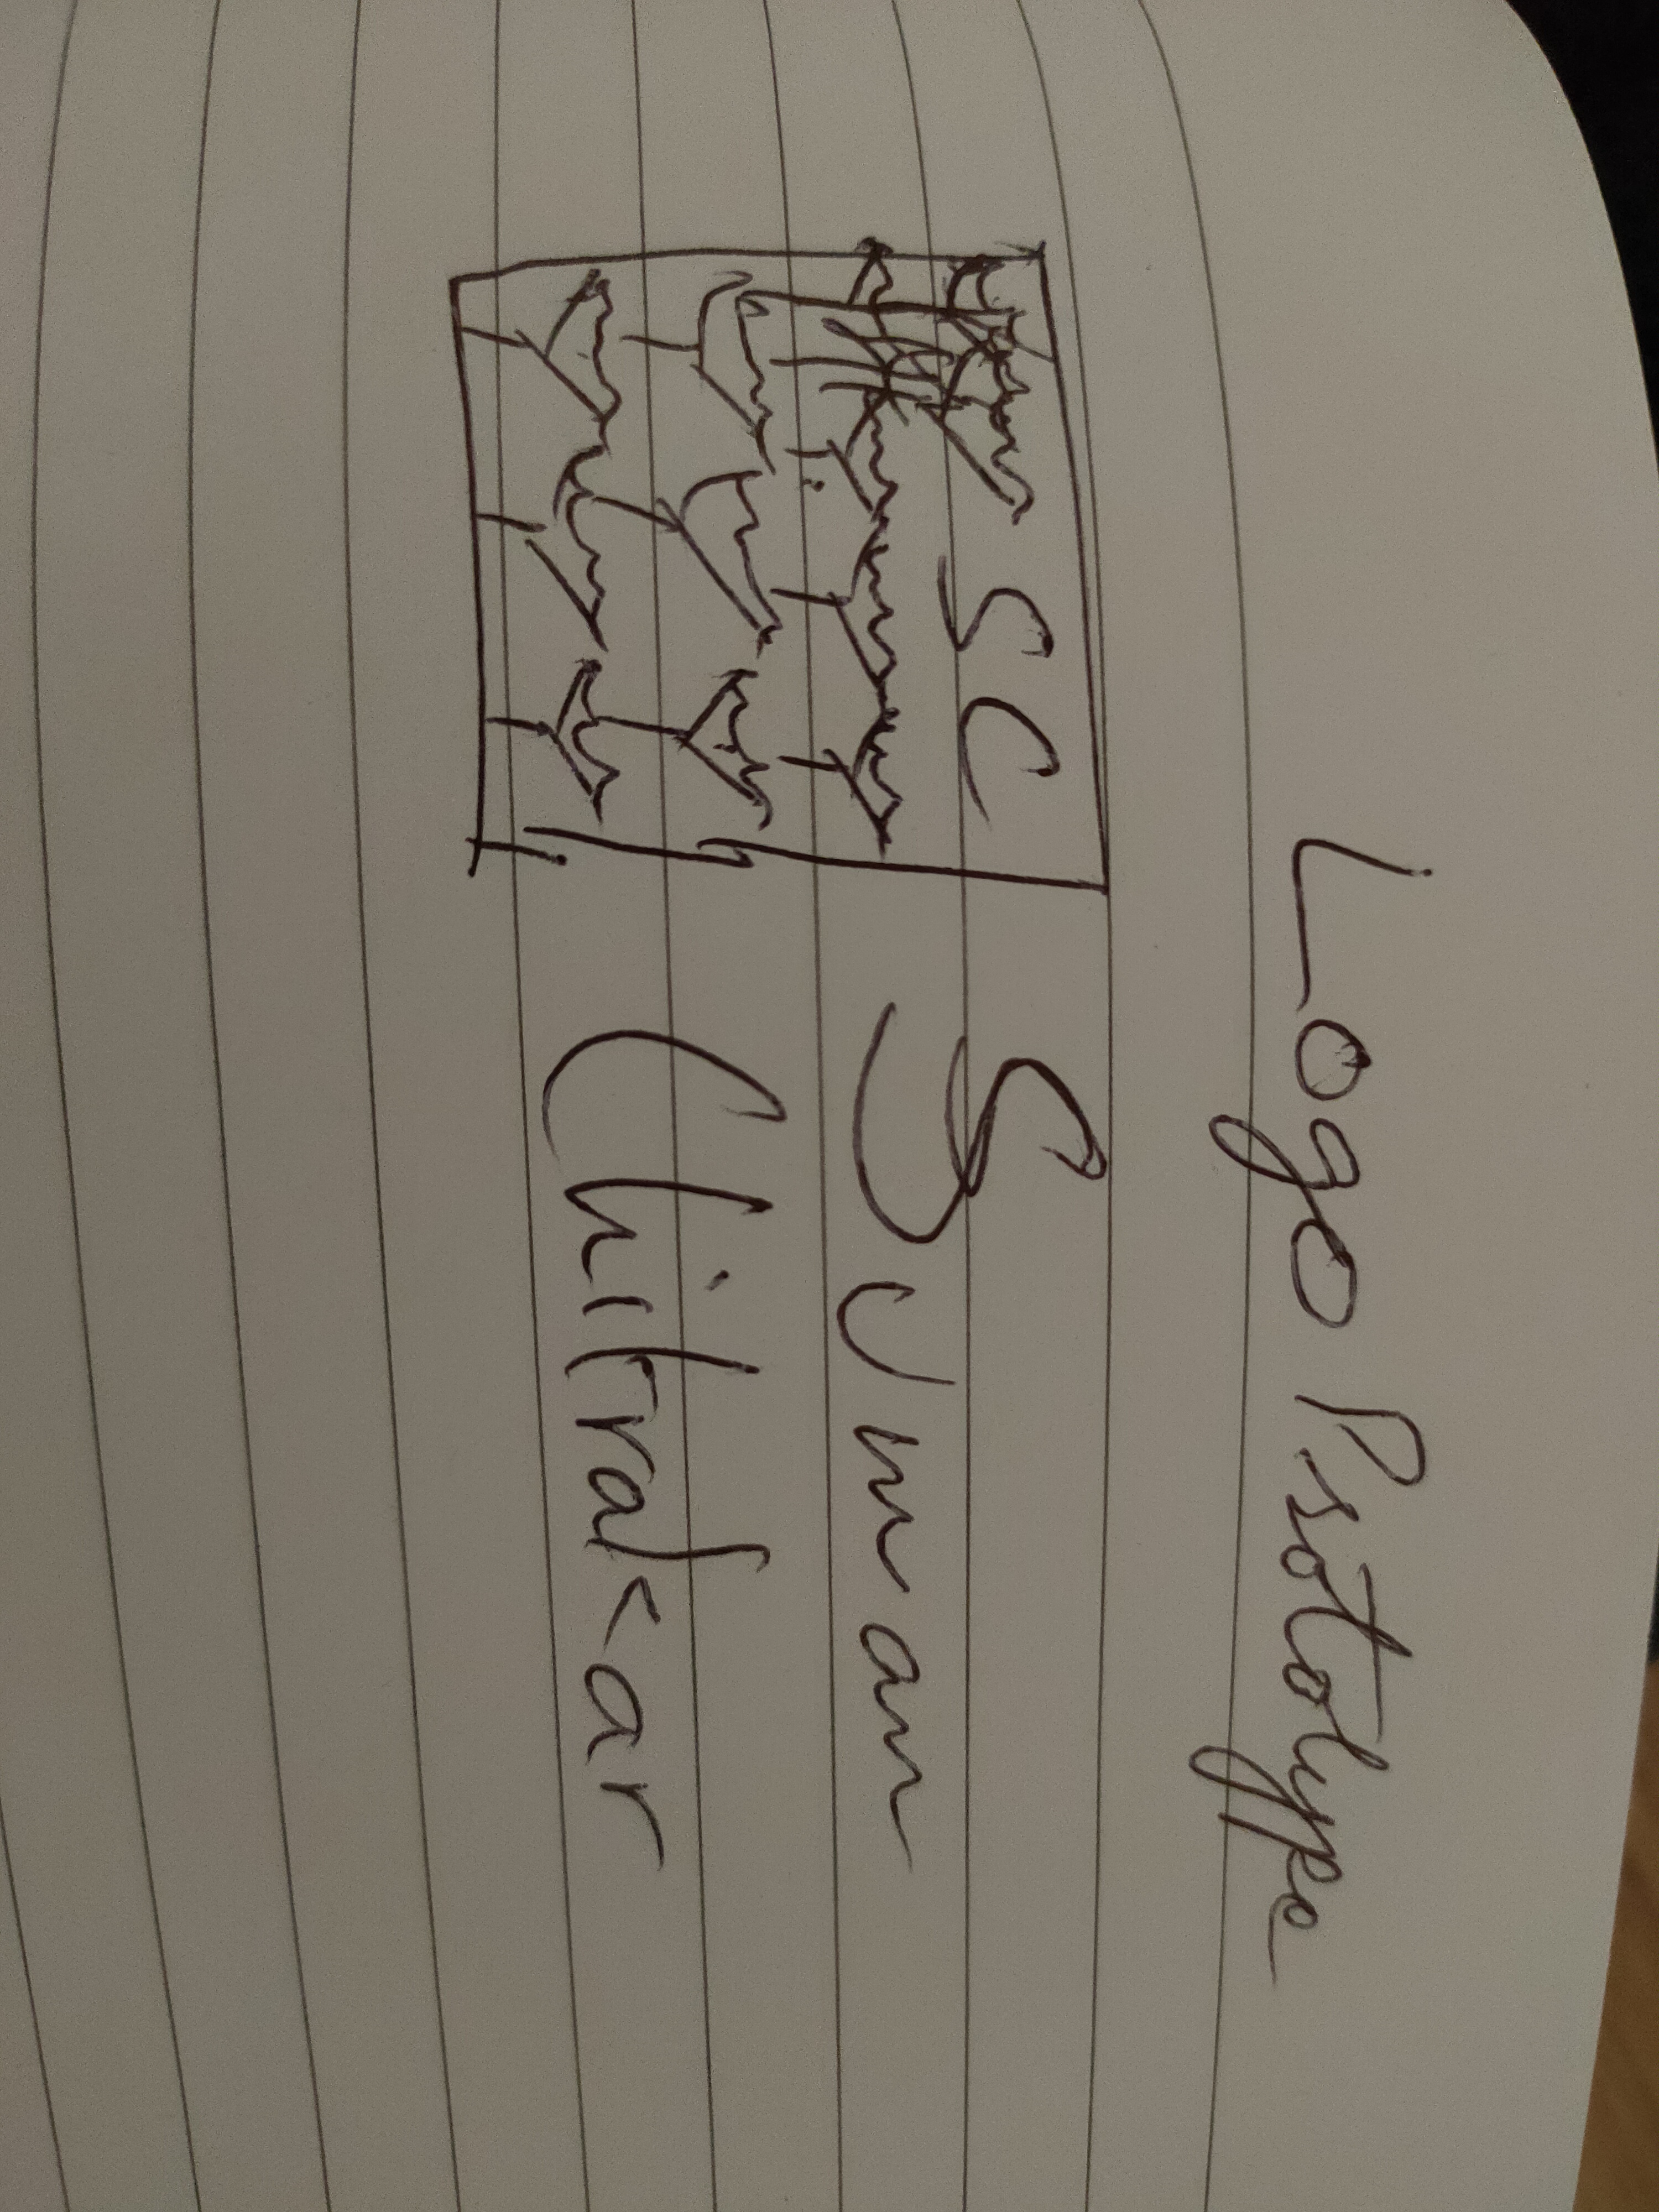 Logo Psototype
SC
Suman
Chitrakar